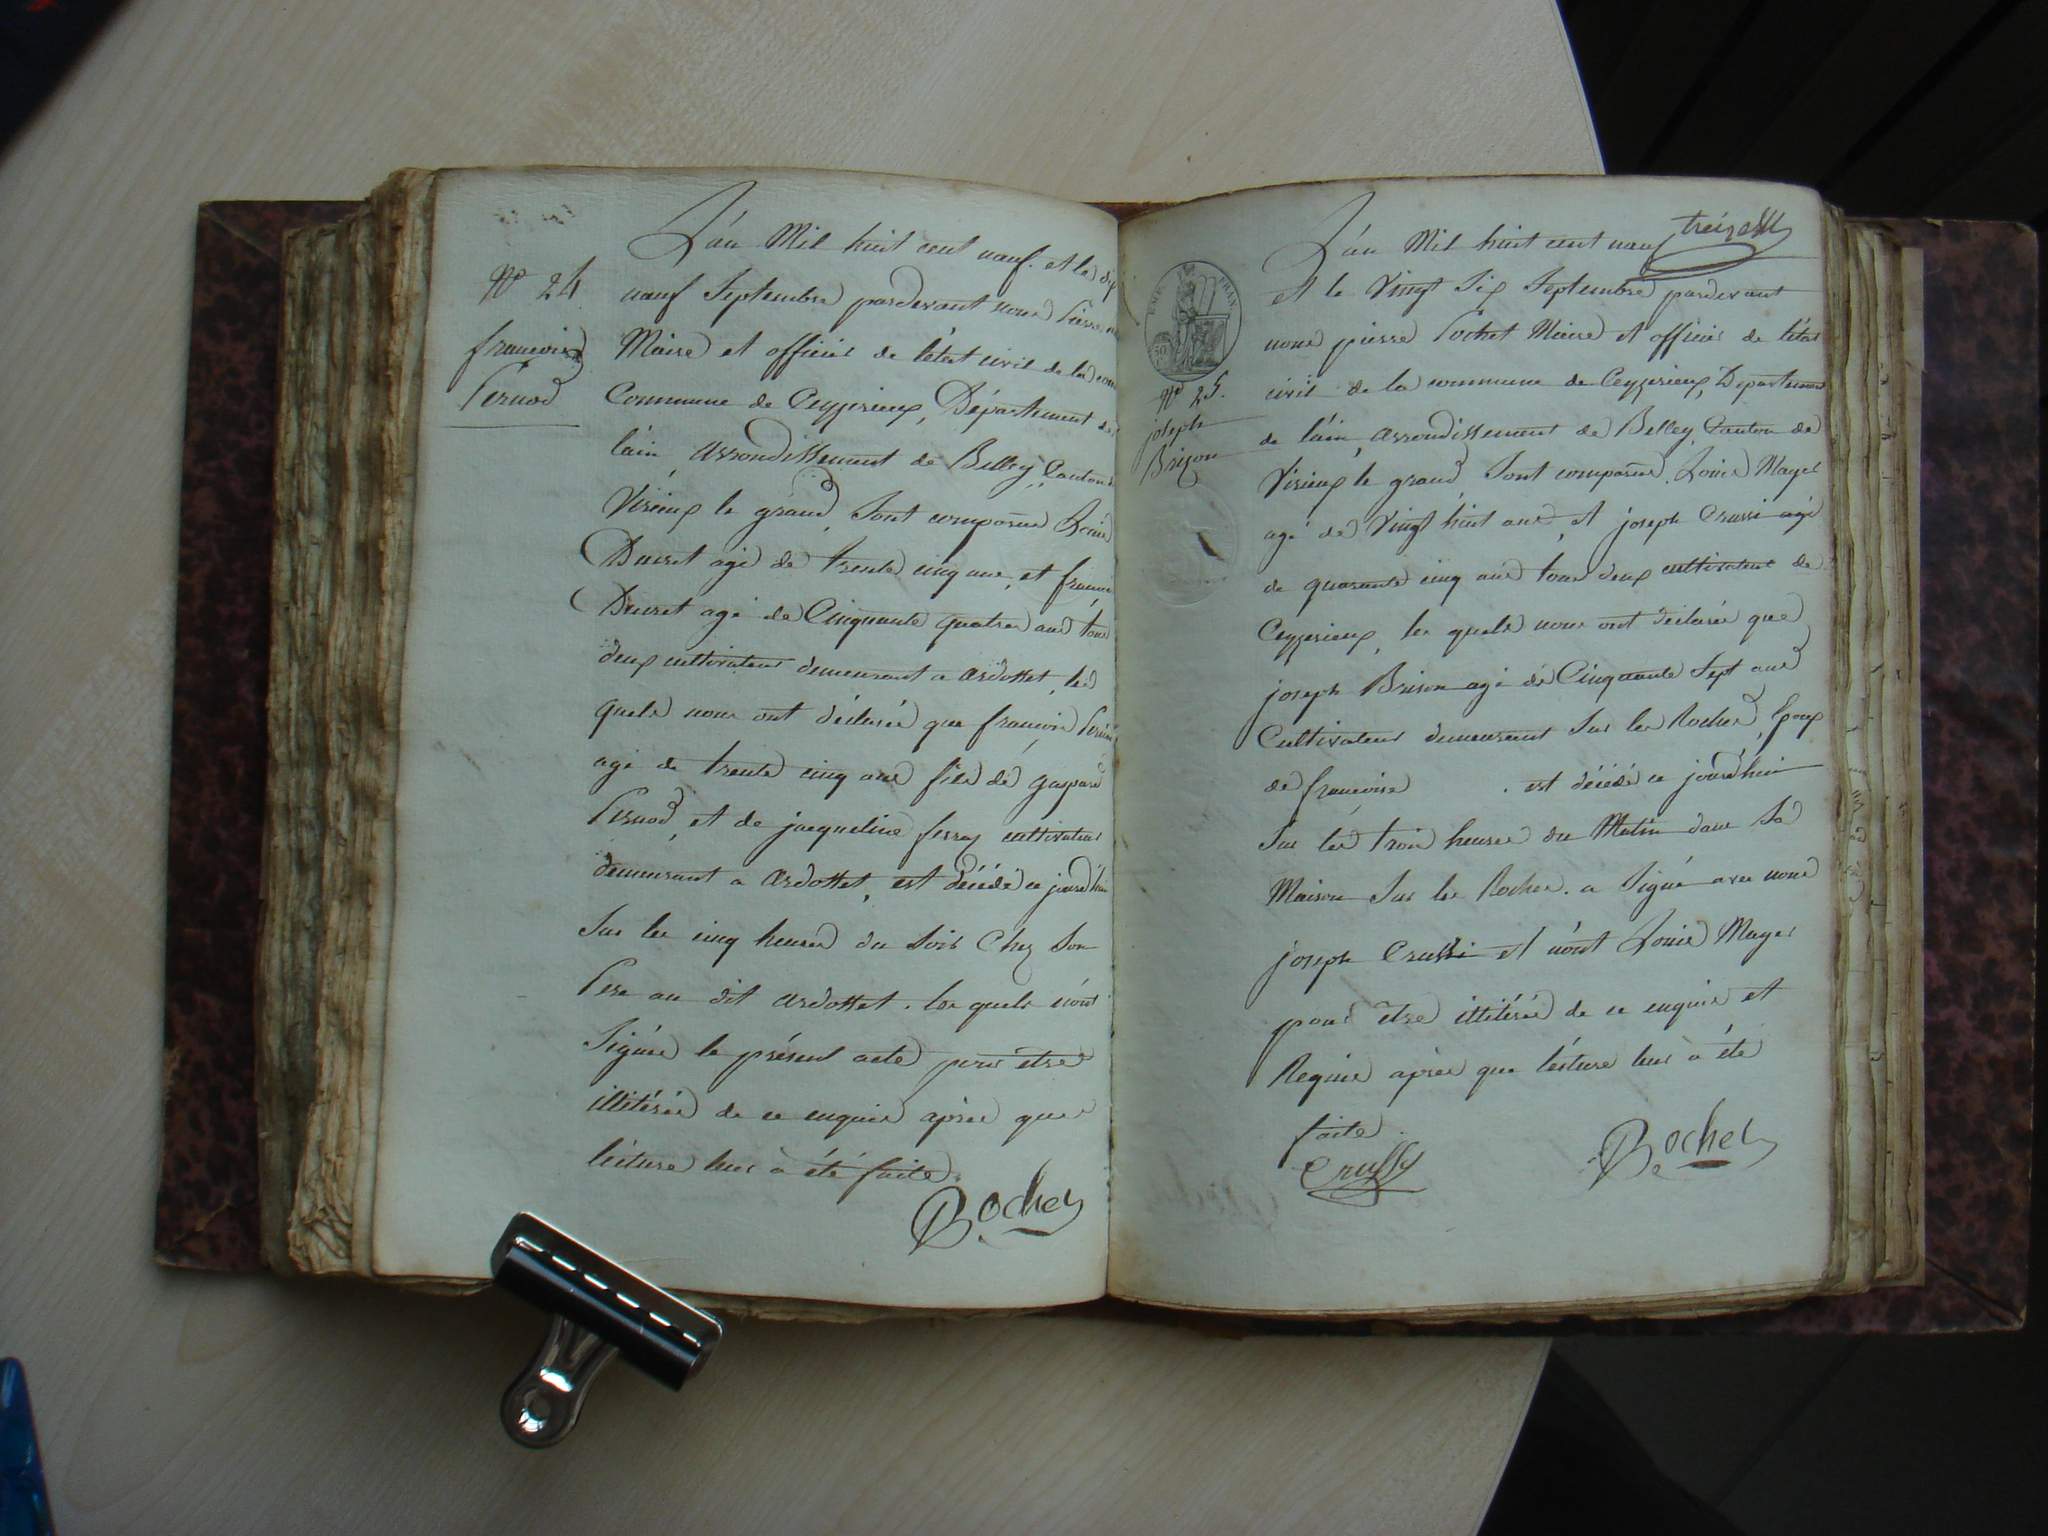 N° 24
francois
Pernod
L'an Mil huit cent neuf. et le dix
neuf Septembre pardevant nous Pierre
Maire et officier de l'état civil de la
Commune de Ceyzerieux, Département de
l'ain, Arrondissement de Belley, Canton de
Virieux le grand, Sont comparus
Ducret agé de trente cinq ans, et
Ducret agé de Cinquante quatre ans tous
deux cultivateurs demeurant a Ardosset, les
quels nous ont déclarés que francois
agé de trente cinq ans fils de gaspard
Pernod, et de jacqueline ferroy cultivateur
demeurant a Ardosset, est décédé ce jourd'hui
Sur les cinq heures du Soir Chez Son
Pere au dit Ardosset. les quels n'ont
Signés le présent acte pour etre
illitérés de ce enquis après que
lecture leur à été faite.
Bochet
treize
EMP. FRAN.
50
N° 25.
joseph
Brizon
L'an Mil huit cent neuf
et le Vingt Six Septembre pardevant
nous pierre Pochet Maire et officier de l'état
civil de la commune de Ceyzerieux, Département
de l'ain, Arrondissement de Belley, Canton de
Virieux le grand Sont comparus. Louis Mayer
agé de Vingt huit ans, et joseph Crussi agé
de quarante cinq ans tous deux cultivateurs de
Ceyzerieux, les quels nous ont déclarés que
joseph Brison agé de Cinquante Sept ans
Cultivateur demeurant Sur les Rocher, Epoux
de francoise . est décédé ce jourd'hui
Sur les trois heures du Matin dans Sa
Maison Sur les Rocher. a Signé avec nous
joseph Crussi et n'ont Louis Mayer
pour etre illitérés de ce enquis et
Requis après que lecture leur à été
faite.
Crussy
Bochet